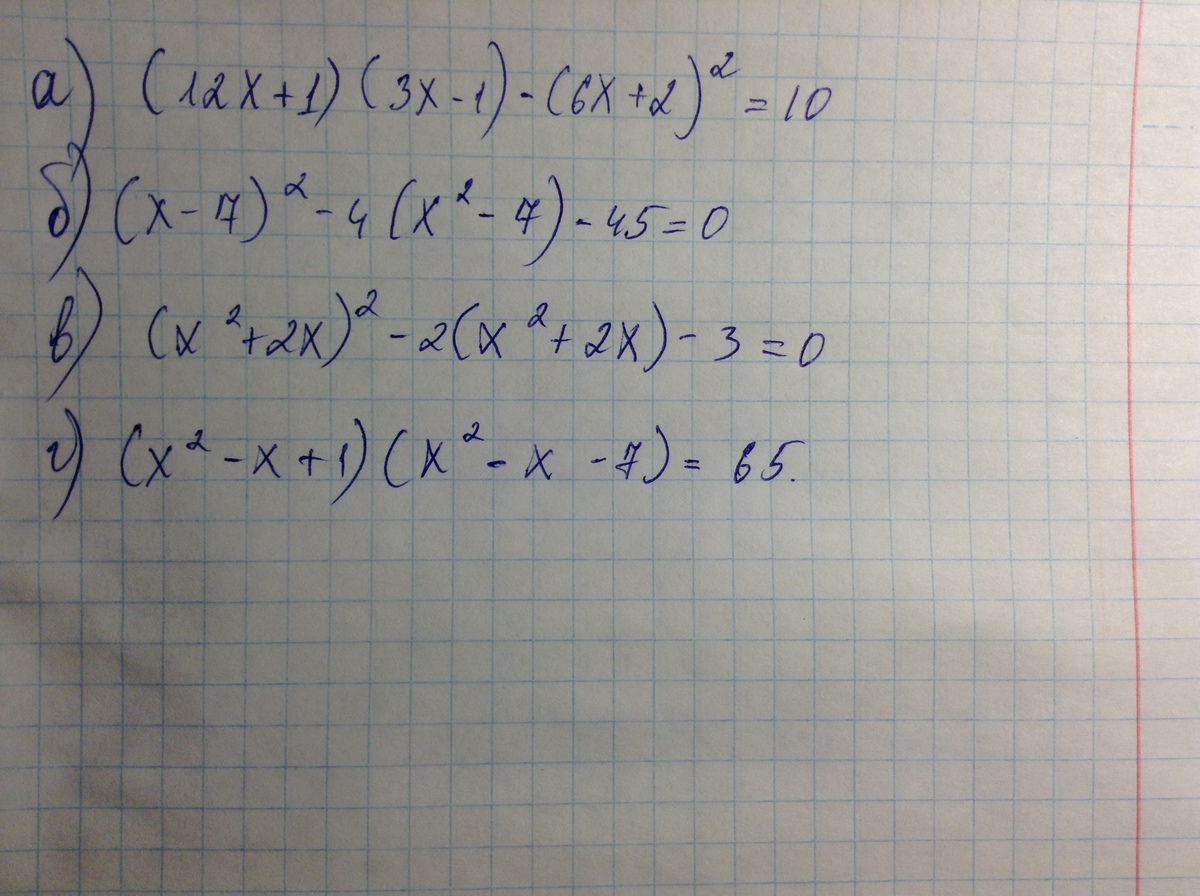 а) (12x+1)(3x-1)-(6x+2)²=10
б) (x-7)²-4(x²-7)-45=0
в) (x²+2x)²-2(x²+2x)-3=0
г) (x²-x+1)(x²-x-7)=65.